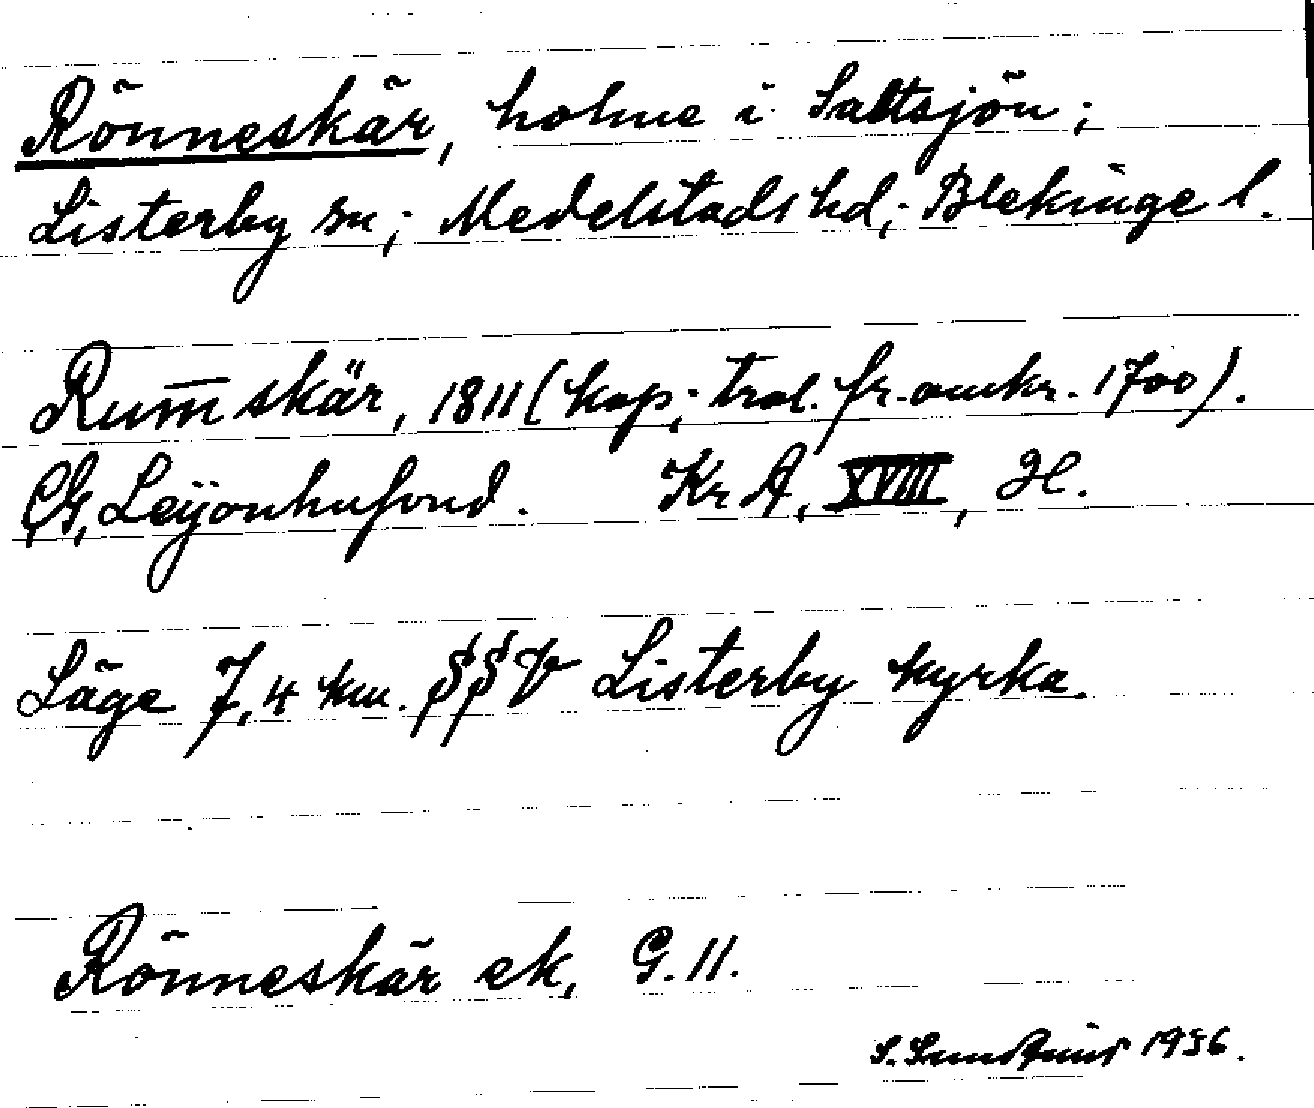 Rönneskär, holme i Saltsjön;
Listerby sn; Medelstads hd; Blekinge l.
Rum̅skär, 1811 (kop; trol. fr. omkr. 1700).
G, Leÿonhufvud. Kr A, XVIII, H.
Läge 7,4 km. SSV Listerby kyrka.
Rönneskär ek, G. 11.
S. 1956.